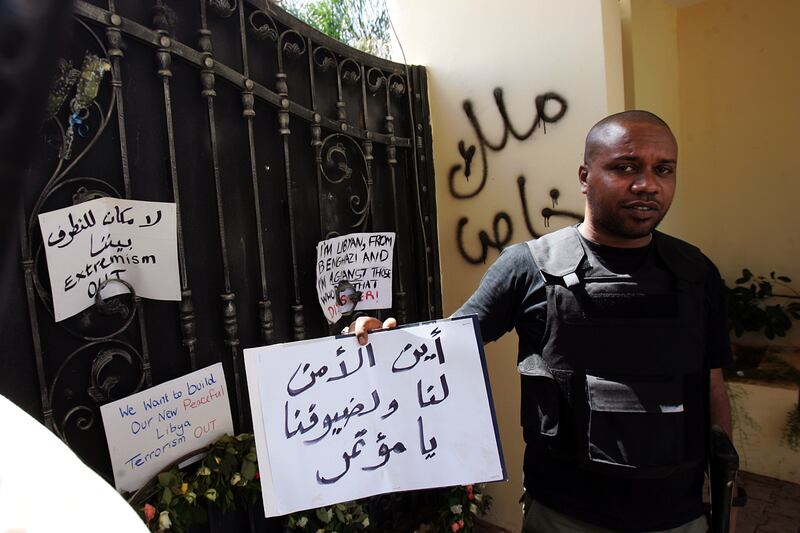 ملك
خاص
لا مكان للتطرف
بيننا
Extremism
OUT
I'M LIBYAN, FROM
BENGHAZI AND
I'M AGAINST THOSE
WHO THAT
We Want to build
Our New Peaceful
Libya
Terrorism OUT
أين الأمن
لنا ولضيوفنا
يا مؤتمر